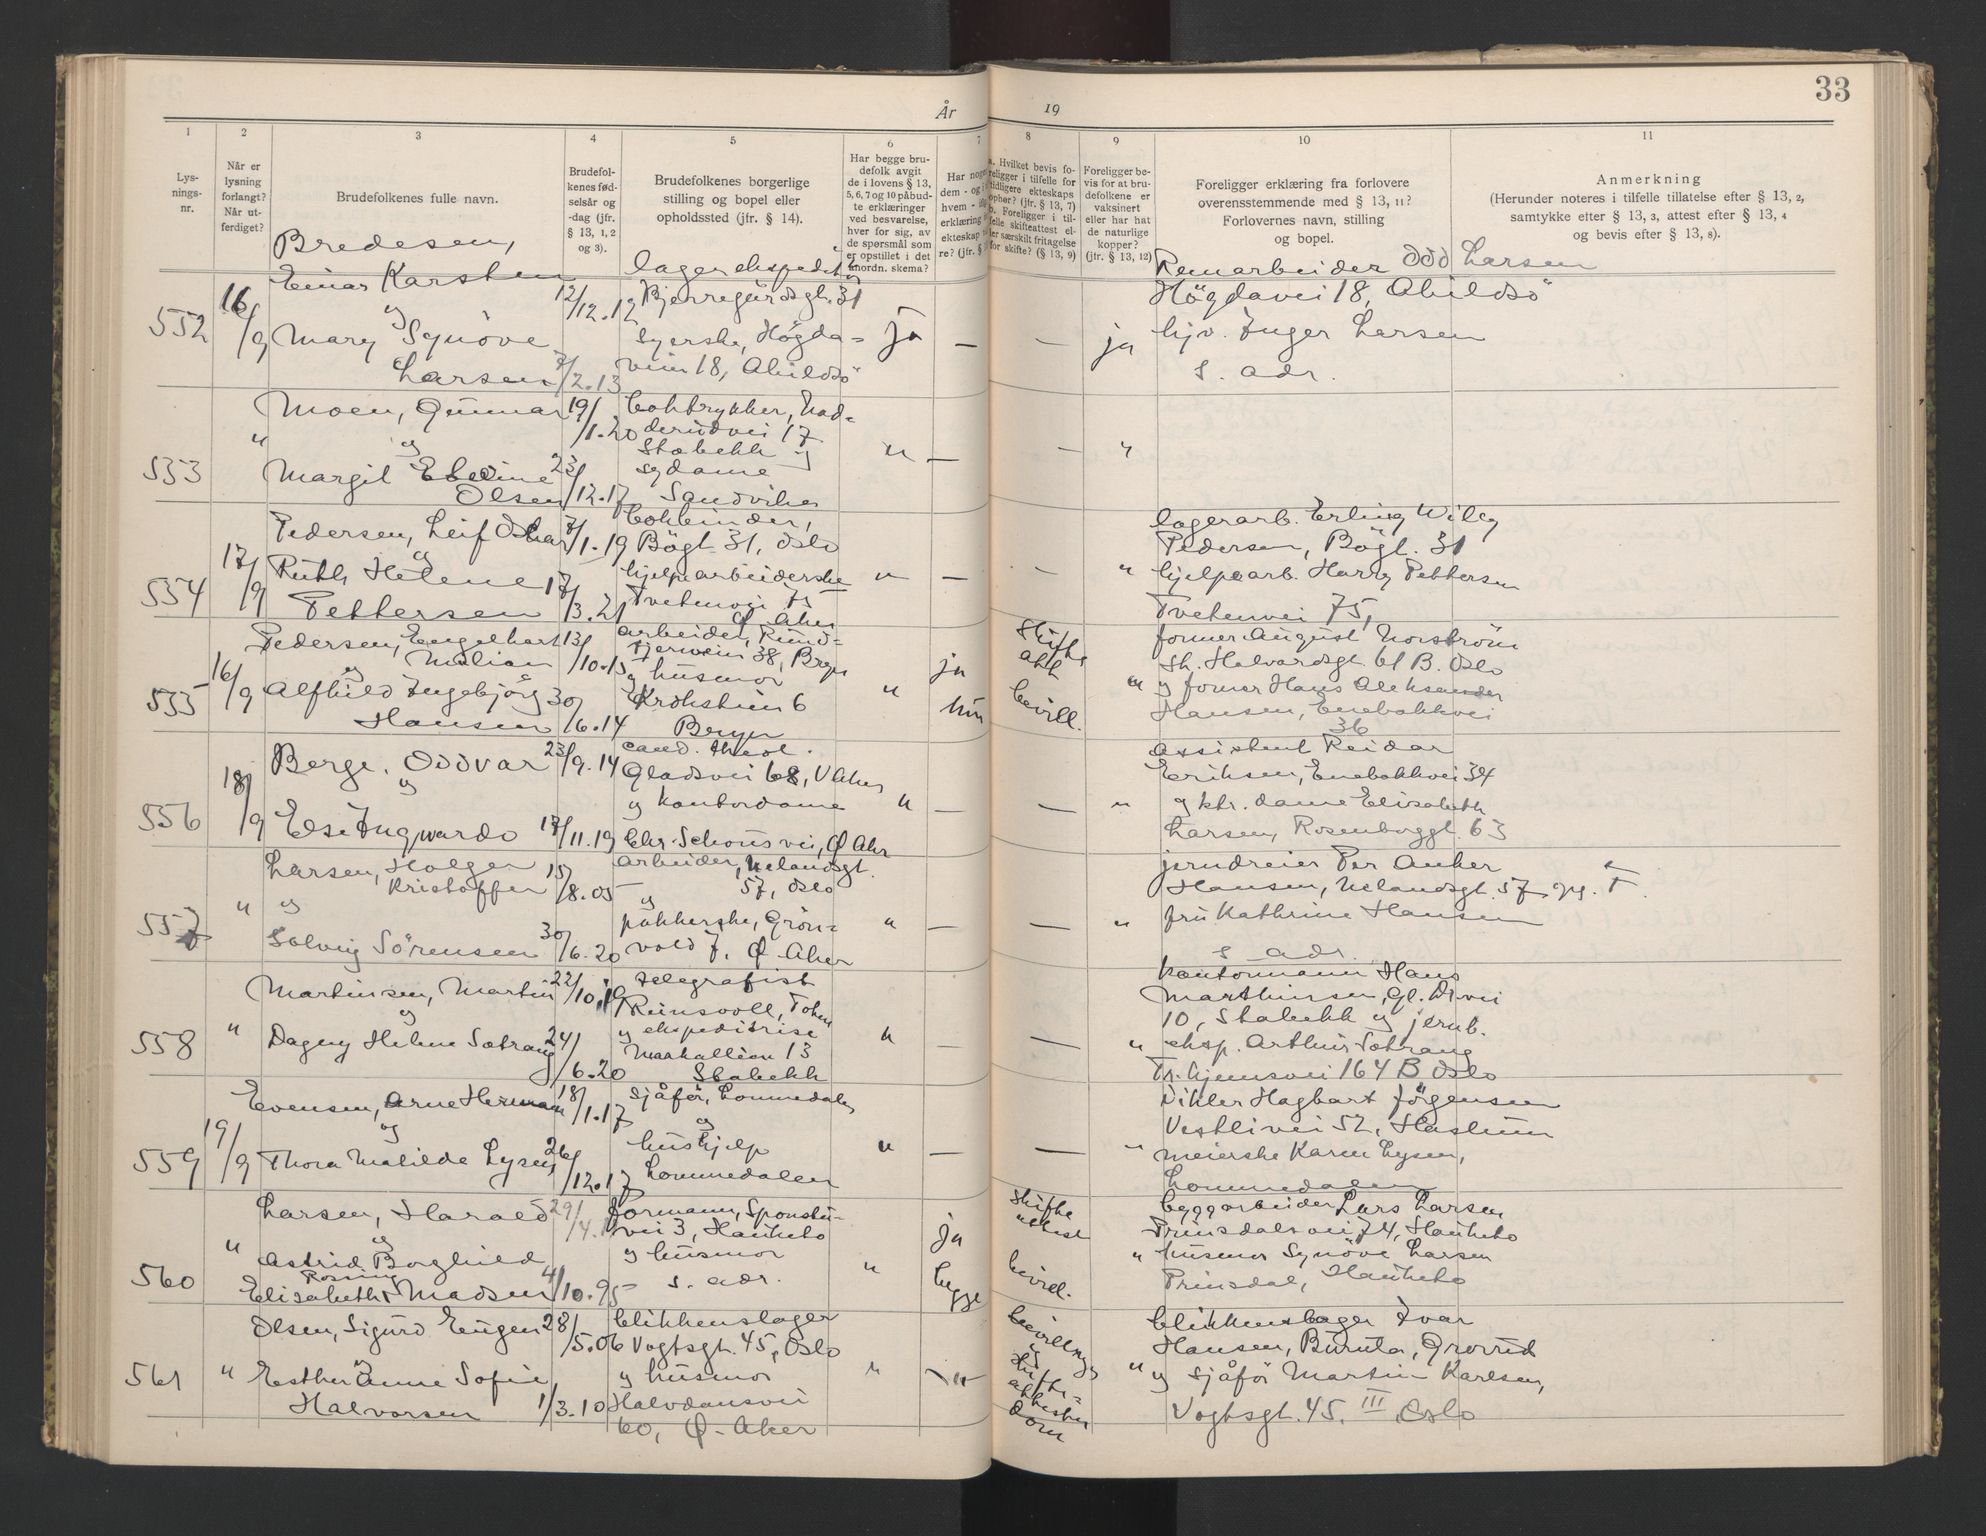 År
19
33
1
2
3
4
5
6
7
8
9
10
11
Lys-
nings-
nr.
Når er
lysning
forlangt?
Når ut-
ferdiget?
Brudefolkenes fulle navn.
Brudefol-
kenes fød-
selsår og
-dag (jfr.
§ 13, 1, 2
og 3).
Brudefolkenes borgerlige
stilling og bopel eller
opholdssted (jfr. § 14).
Har begge bru-
defolk avgit
de i lovens § 13,
5, 6, 7 og 10 påbud-
te erklæringer
ved besvarelse,
hver for sig, av
de spørsmål som
er opstillet i det
anordn. skema?
Har noge
dem - og i
hvem -
erklæring
ekteskap
re? (jfr. §
a. Hvilket bevis fo-
religger i tilfelle for
tidligere ekteskaps
ophør? (jfr. § 13, 7)
b. Foreligger i til-
felle skifteattest el-
ler særskilt fritagelse
for skifte? (§ 13, 9)
Foreligger be-
vis for at bru-
defolkene er
vaksinert
eller har hat
de naturlige
kopper?
(jfr. § 13, 12)
Foreligger erklæring fra forlovere
overensstemmende med § 13, 11?
Forlovernes navn, stilling
og bopel.
Anmerkning
(Herunder noteres i tilfelle tillatelse efter § 13, 2,
samtykke etter § 13, 3, attest efter § 13, 4
og bevis efter § 13, 8).
552
16/9
Bredesen,
Einar Karsten
og
Mary Synöve
Larsen
12/12.12
7/2.13
lagerekspeditör
Bjerregårdsgt. 31
Syerske, Högda-
veien 18, Abildsö
ja
—
—
ja
Rørarbeider Odd Larsen
Högdavei 18, Abildsö
hjv. Inger Larsen
s. adr.
553
"
Moen, Gunnar
og
Margit Eveline
Olsen
19/1.20
23/12.17
boktrykker, Nad-
derudvei 17
Stabekk og
sydame
Sandviken
"
—
—
"
554
17/9
Pedersen, Leif Oskar
og
Ruth Helene
Pettersen
7/1.19
17/3.21
bokbinder,
Bögt. 31, Oslo
hjelpearbeiderske
Tvetenvei 75
Ø. Aker
"
—
—
"
lagerarb. Erling Willy
Pedersen, Bögt. 31
hjelpearb. Harry Pettersen
Tvetenvei 75,
555
16/9
Pedersen, Engelhart
Molian
og
Alfhild Ingebjörg
Hansen
13/10.15
30/6.14
arbeider,
38, Bergen
og husmor
Krohstien 6
Bergen
"
ja
hun
Skifte
att
bevill.
"
former August Norström
St. Halvardsgt. 61 B. Oslo
og former Hans Aleksander
Hansen, Enebakkvei
36
556
18/9
Berge, Oddvar
og
Else Ingwardo
23/9.14
17/11.19
cand. theol.
Gladsvei 68, V Aker
og kontordame
Chr. Schousvei, Ø Aker
"
—
—
"
assistent Reidar
Eriksen, Enebakkvei 34
og ktr. dame Elisabeth
Larsen, Rosenborggt. 63
557
"
Larsen, Holger
Kristoffer
og
Solveig Sörensen
15/8.05
30/6.20
arbeider, Uelandsgt.
57, Oslo
og
pakkerske, Grön-
vold 7, Ø. Aker
"
—
—
"
jerndreier Per Anker
Hansen, Uelandsgt. 57 og
fru Kathrine Hansen
s. adr.
558
"
Martinsen, Martin
og
Dagny Helene Sætrang
22/10.19
24/6.20
telegrafist
Reinsvoll, Toten
og ekspeditrise
13
Stabekk
"
—
—
"
kontormann Hans
Marthinsen, Gl. Dr.vei
10, Stabekk og jernb.
eksp. Arthur Sætrang
Tr.hjemsvei 164 B Oslo
559
19/9
Evensen, Arne Herman
og
Thora Matilde Lysen
18/1.17
26/12.17
sjåför, Lommedalen
og
hushjelp
Lommedalen
"
—
—
"
Hagbart Jörgensen
Vestlivei 52, Haslum
meierske Karen Lysen,
Lommedalen
560
"
Larsen, Harald
og
Astrid Borghild
Rossing
Elisabeth Madsen
29/4.1
4/10.95
formann,
vei 3, Hauketo
og husmor
s. adr.
"
ja
begge
Skifte
attest
bevill.
"
byggarbeider Lars Larsen
Prinsdalsvei 74, Hauketo
husmor Synöve Larsen
Prinsdal, Hauketo
561
"
Olsen, Sigurd Eugen
og
Esther Anne Sofie
Halvorsen
28/5.06
1/3.10
blikkenslager
Vogtsgt. 45, Oslo
og husmor
Halvdansvei
60, Ø. Aker
"
"
bevillng
og
Skifte-
attester
Dom
"
blikkenslager Ivar
Hansen, Grorud
og sjåför Martin Karlsen,
Vogtsgt. 45, III Oslo